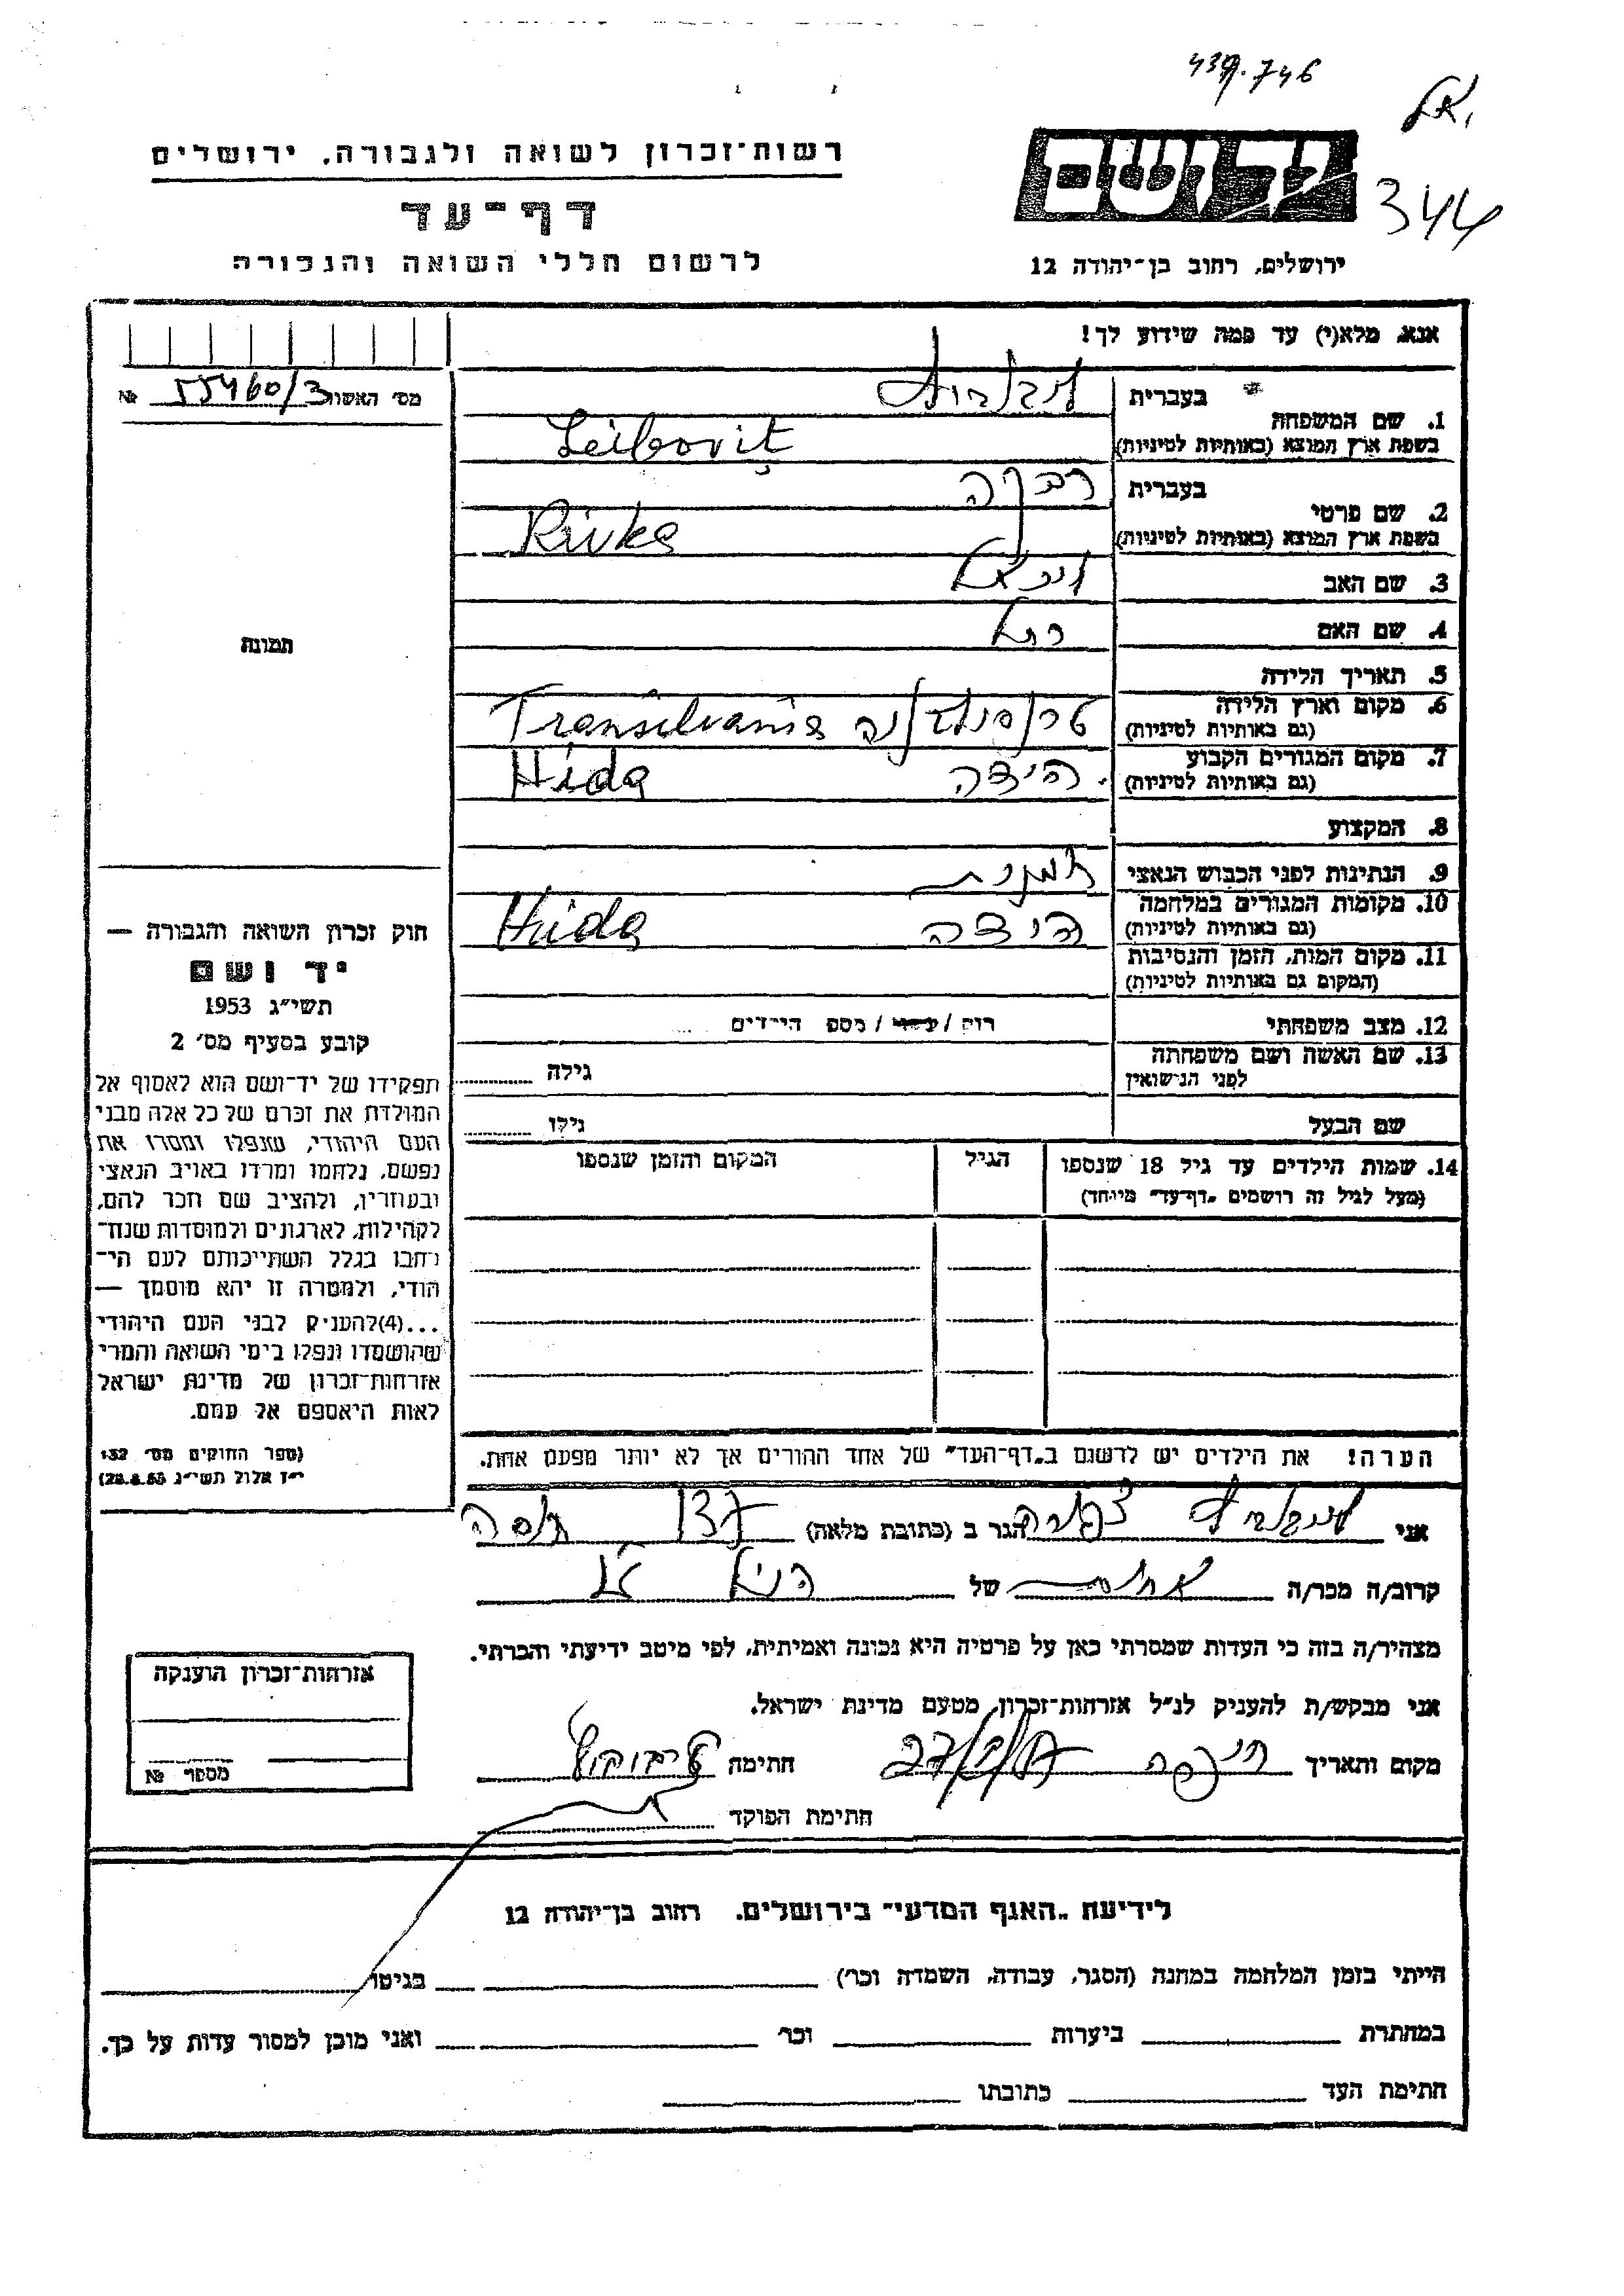 439.746
344
יד ושם
ירושלים, רחוב בן־יהודה 12
רשות־זכרון לשואה ולגבורה, ירושלים
דף־עד
לרשום חללי השואה והגבורה
אנא, מלא(י) עד כמה שידוע לך!
מס' האשור 55460/3 №
בעברית
1. שם המשפחה
בשפת ארץ המוצא (באותיות לטיניות) Leibovit
בעברית רבקה
2. שם פרטי
בשפת ארץ המוצא (באותיות לטיניות) Rivka
3. שם האב
4. שם האם רחל
5. תאריך הלידה
6. מקום וארץ הלידה טרנסילבניה Transilvania
(גם באותיות לטיניות)
7. מקום המגורים הקבוע הידה Hida
(גם באותיות לטיניות)
8. המקצוע
9. הנתינות לפני הכבוש הנאצי
10. מקומות המגורים במלחמה הידה Hida
(גם באותיות לטיניות)
11. מקום המות, הזמן והנסיבות
(המקום גם באותיות לטיניות)
12. מצב משפחתי רוק / נשוי / מספ הילדים
13. שם האשה ושם משפחתה גילה
לפני הנישואין
שם הבעל גילו
14. שמות הילדים עד גיל 18 שנספו הגיל המקום והזמן שנספו
(מעל לגיל זה רושמים „דף־עד" מיוחד)
הערה! את הילדים יש לרשום ב„דף־העד" של אחד ההורים אך לא יותר מפעם אחת.
תמונה
חוק זכרון השואה והגבורה —
יד ושם
תשי"ג 1953
קובע בסעיף מס' 2
תפקידו של יד־ושם הוא לאסוף אל
המולדת את זכרם של כל אלה מבני
העם היהודי, שנפלו ומסרו את
נפשם, נלחמו ומרדו באויב הנאצי
ובעוזריו, ולהציב שם וזכר להם,
לקהילות, לארגונים ולמוסדות שנח־
רבו בגלל השתייכותם לעם הי־
הודי, ולמטרה זו יהא מוסמך —
...(4)להעניק לבני העם היהודי
שהושמדו ונפלו בימי השואה והמרי
אזרחות־זכרון של מדינת ישראל
לאות היאספם אל עמם.
(ספר החוקים מס' 132
י"ז אלול תשי"ג 28.8.53)
אני צפורה הגר ב (כתובת מלאה)
קרוב/ה מכר/ה של
מצהיר/ה בזה כי העדות שמסרתי כאן על פרטיה היא נכונה ואמיתית, לפי מיטב ידיעתי והכרתי.
אני מבקש/ת להעניק לנ"ל אזרחות־זכרון, מטעם מדינת ישראל.
מקום ותאריך חיפה חתימה
חתימת הפוקד
אזרחות־זכרון הוענקה
מספר №
לידיעת „האגף המדעי" בירושלים, רחוב בן־יהודה 12
הייתי בזמן המלחמה במחנה (הסגר, עבודה, השמדה וכו') בגיטו
במחתרת ביערות וכו' ואני מוכן למסור עדות על כך.
חתימת העד כתובתו